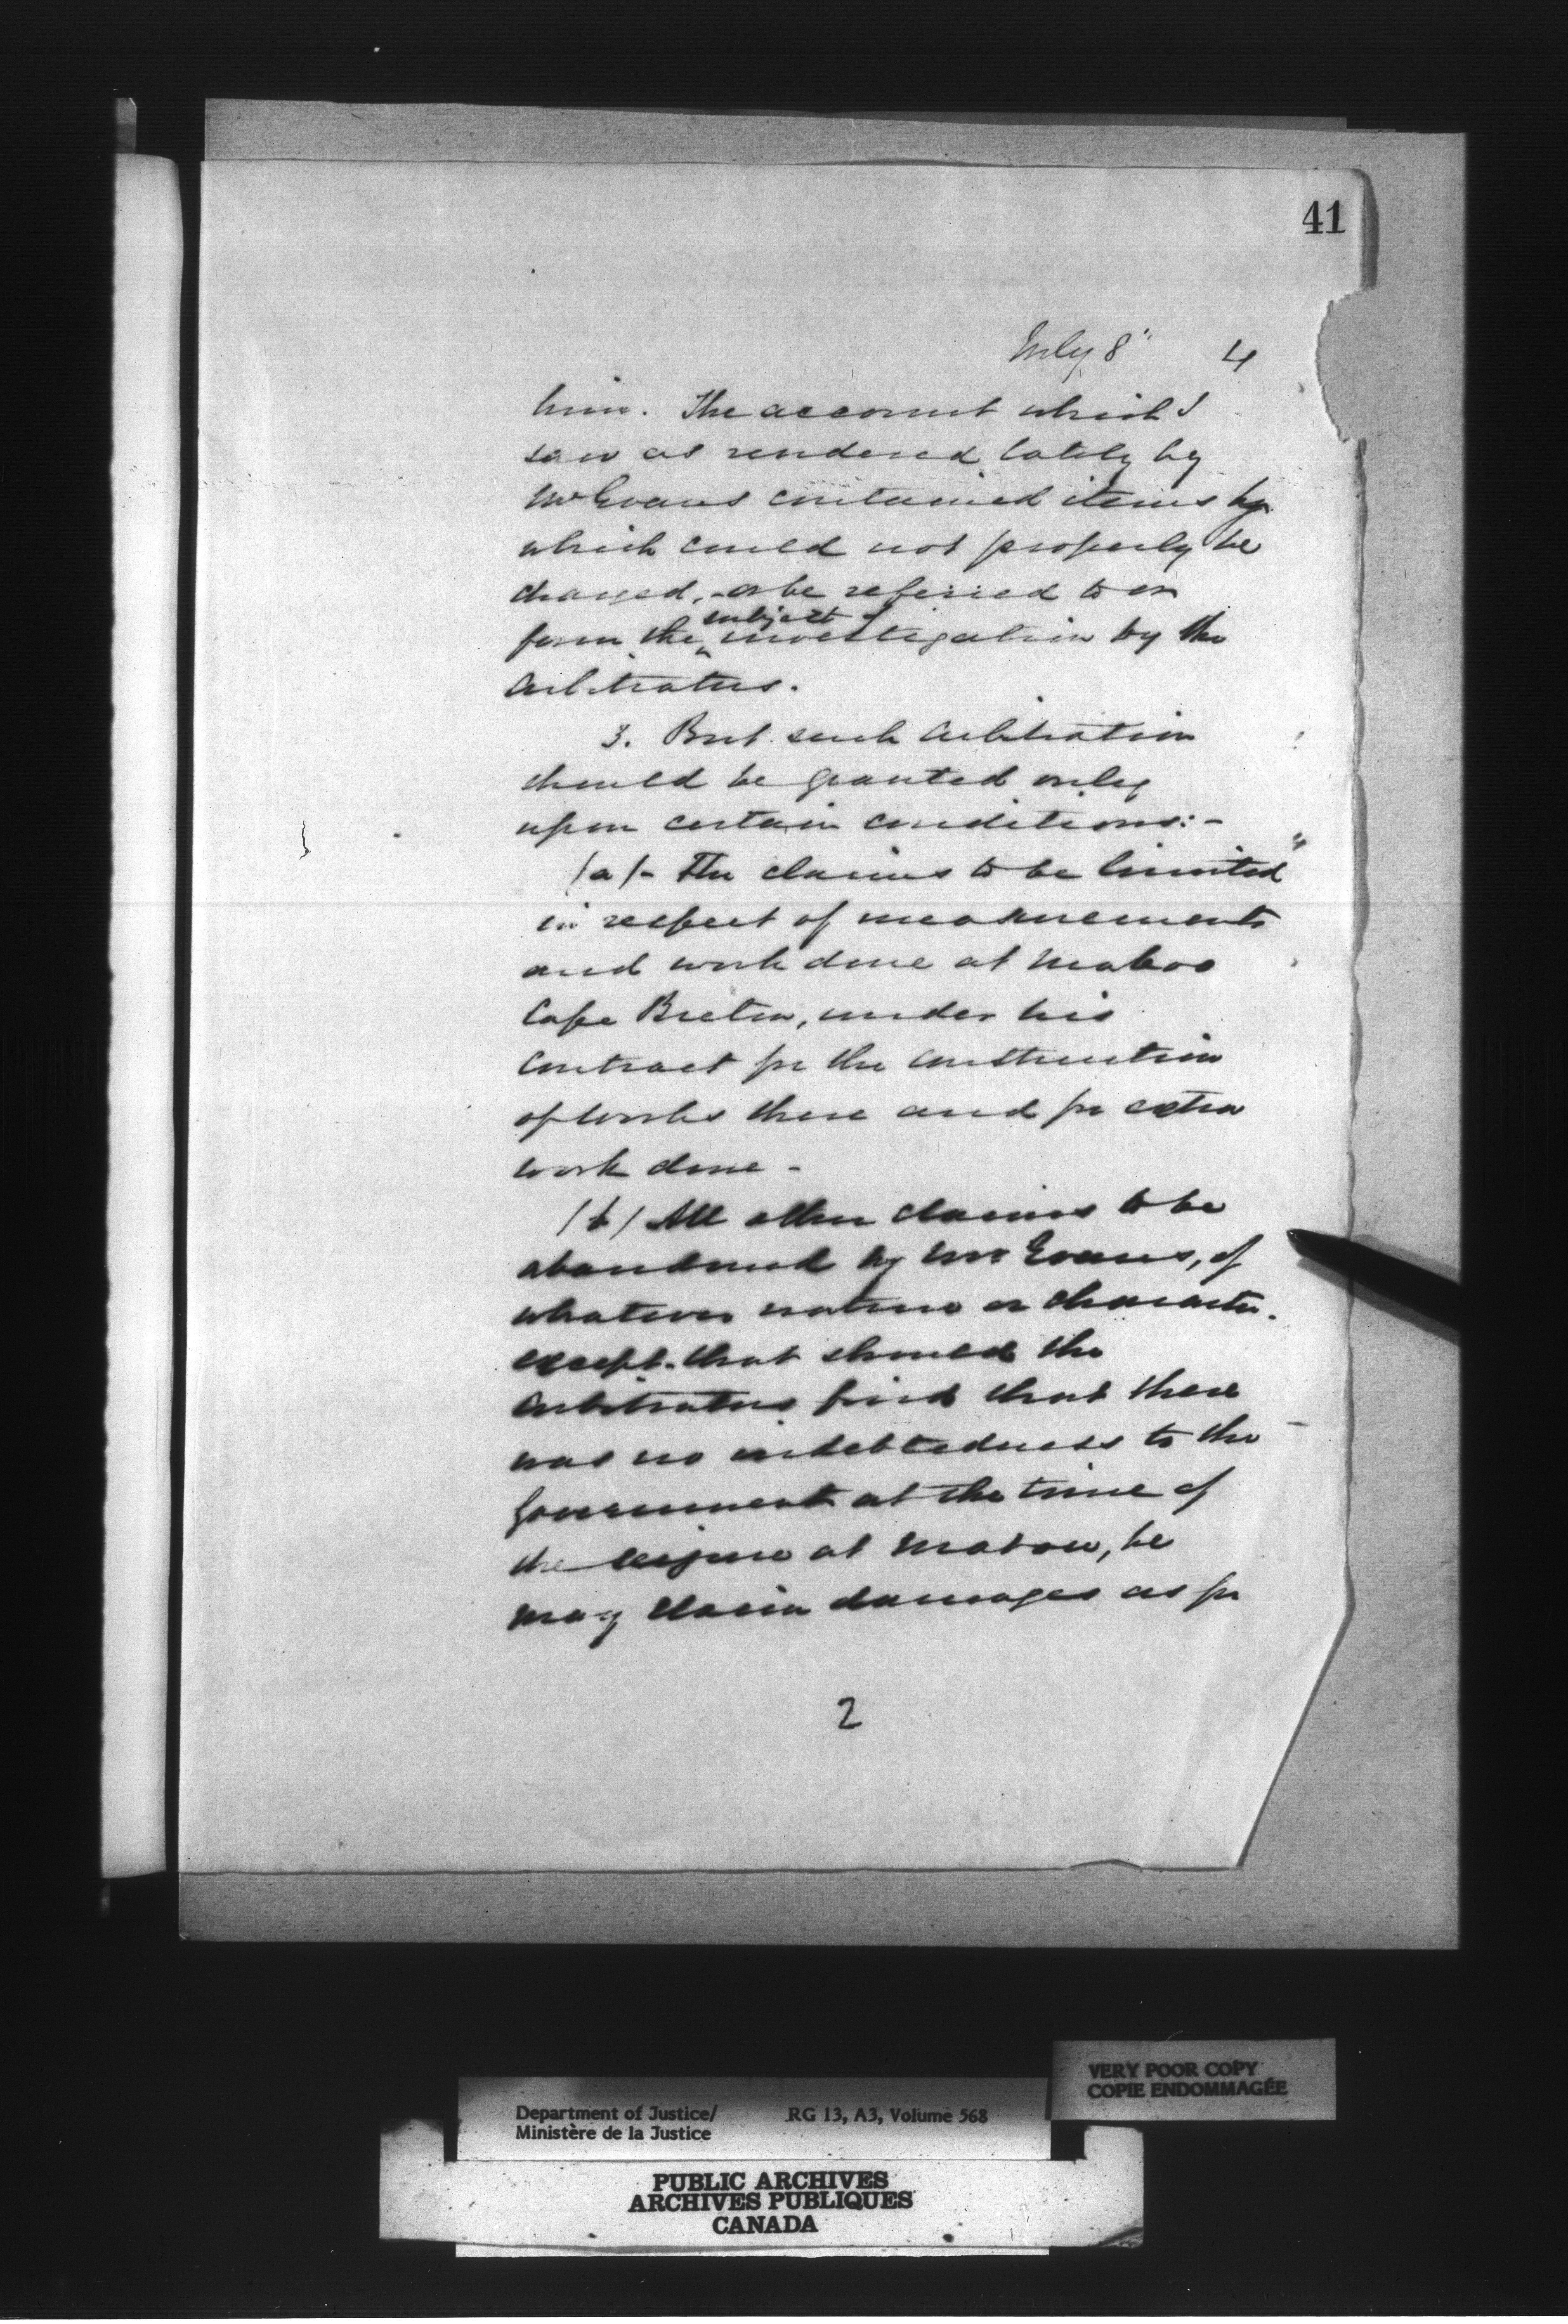 41
July 8" 4
him. The account which I
saw as rendered lately by
Mr Evans contained items
which could not properly be
charged, or be referred to or
form the subject of investigation by the
arbitrators.
3. But such arbitration
should be granted only
upon certain conditions:-
(a)- The claims to be limited
in respect of measurements
and work done at Mabou
Cape Breton, under his
contract for the construction
of works there and for extra
work done -
(b) All other claims to be
abandoned by Mr Evans, of
whatever nature or character.
except that should the
arbitrators find that there
was no indebtedness to the
Government at the time of
the seizure at Mabou, he
may claim damages as for
2
VERY POOR COPY
COPIE ENDOMMAGÉE
Department of Justice/ RG 13, A3, Volume 568
Ministère de la Justice
PUBLIC ARCHIVES
ARCHIVES PUBLIQUES
CANADA